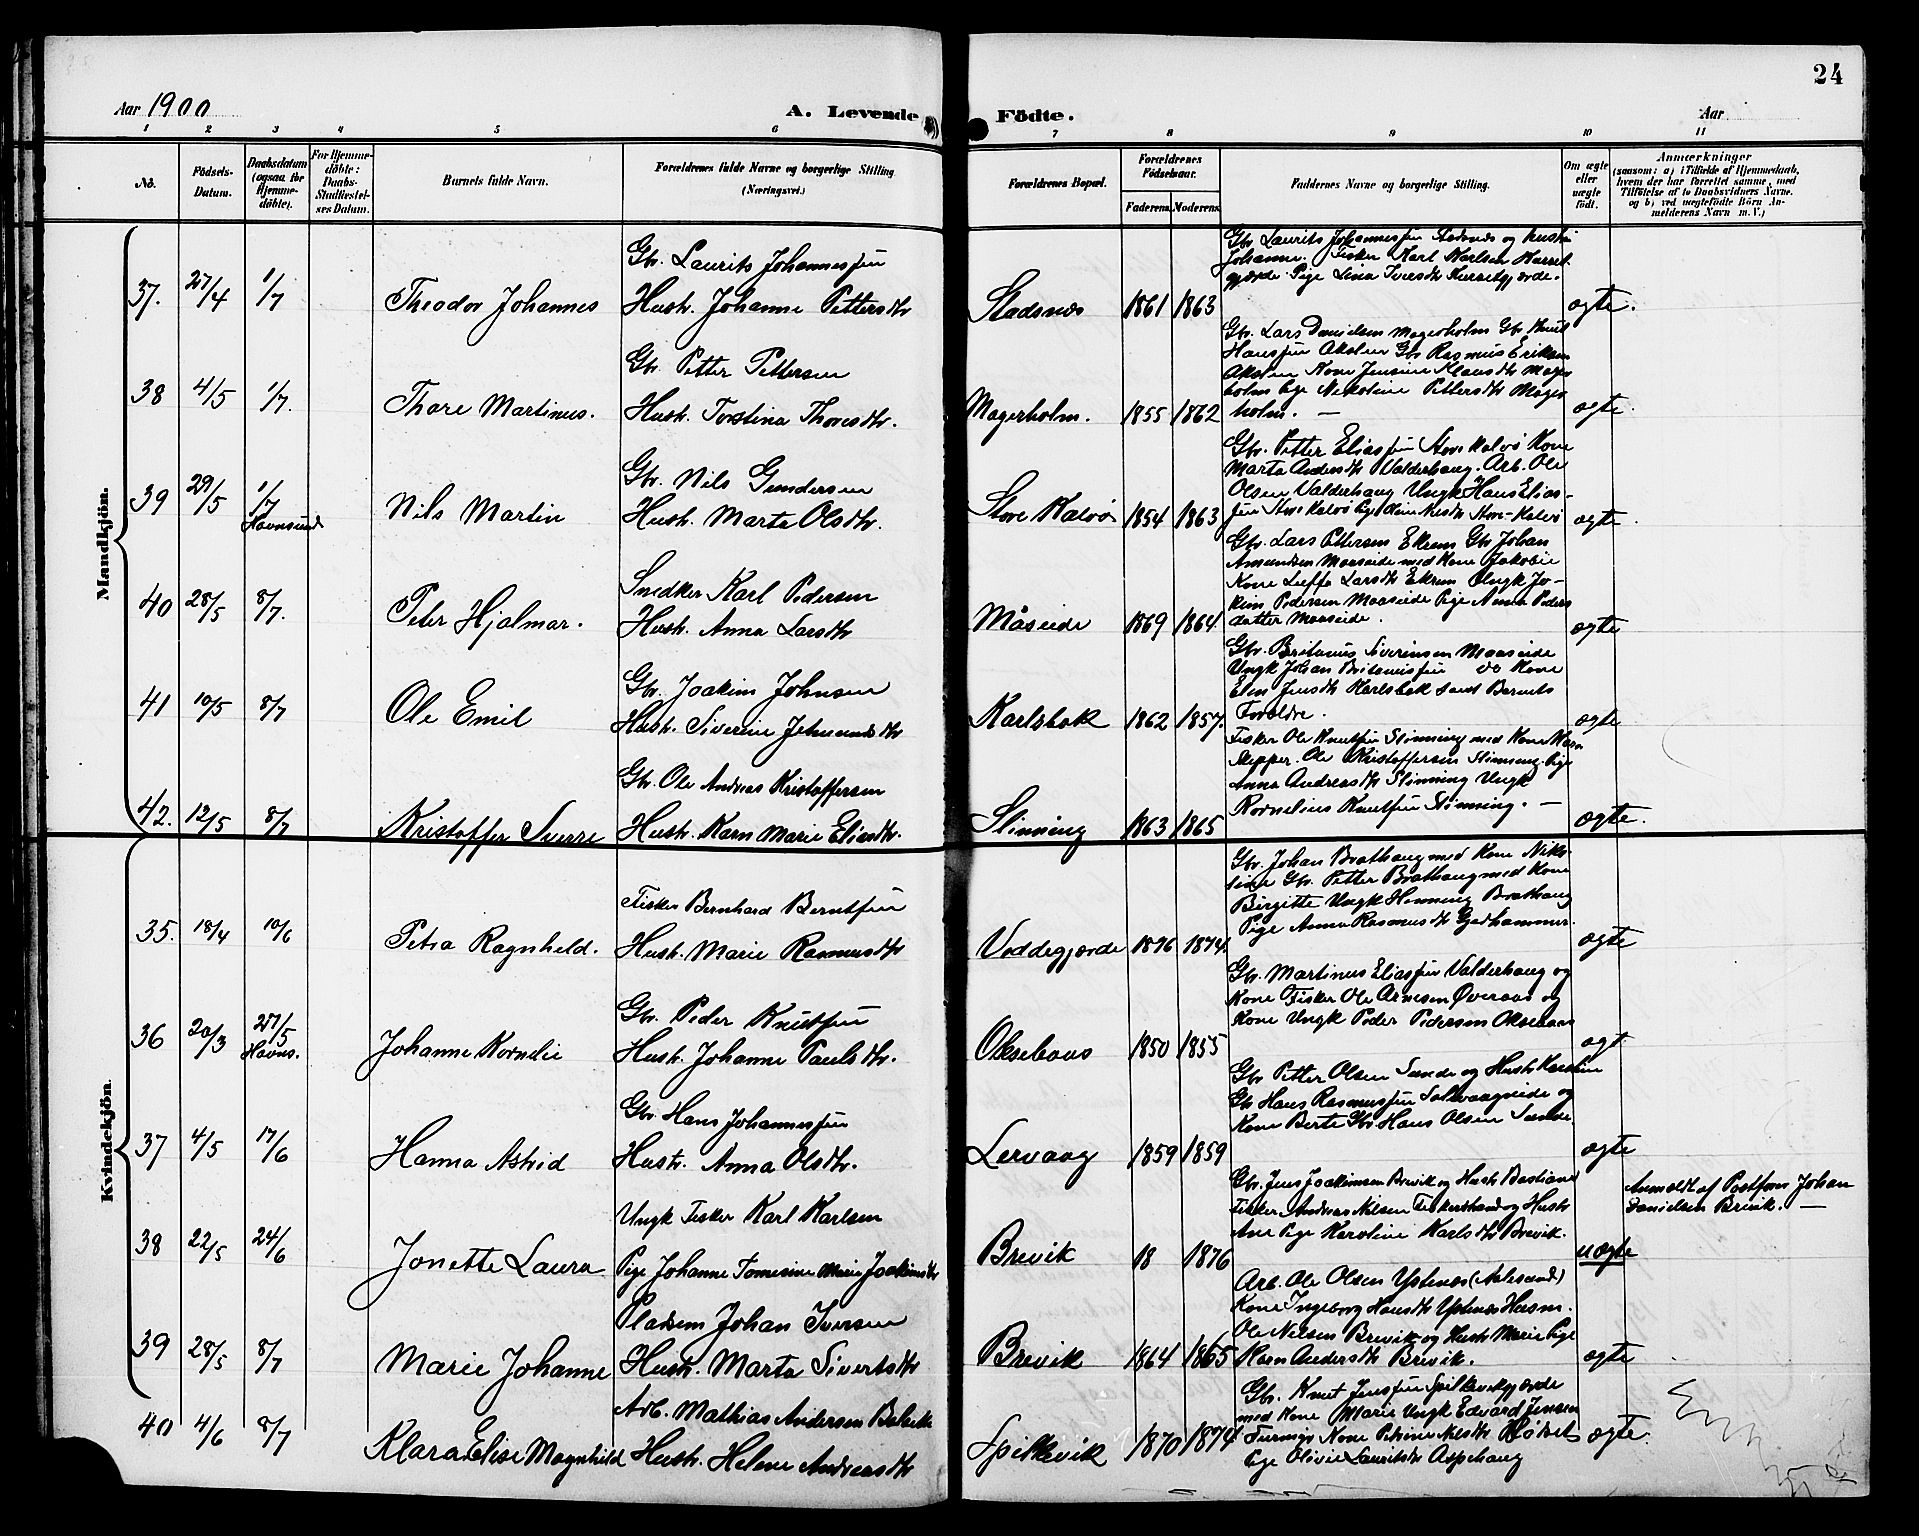 24
Aar 1900
A. Levende Födte.
Aar
1 2 3 4 5 6 7 8 9 10 11
No.
Födsels-Datum.
Daabsdatum (ogsaa for Hjemme-döbte).
For Hjemme-döbte: Daabs-Stadfæstel-ses Datum.
Barnets fulde Navn.
Forældrenes fulde Navne og borgerlige Stilling (Næringsvei.)
Forældrenes Bopæl.
Forældrenes Födselsaar.
Faderens. Moderens.
Faddernes Navne og borgerlige Stilling.
Om ægte eller uægte födt.
Anmærkninger
(saasom: a) i Tilfælde af Hjemmedaab,
hvem der har forrettet samme, med
Tilföielse af to Daabsvidners Navne.
og b) ved uægtefödte Börn An-
melderens Navn m. V.)
Mandkjön.
37. 27/4 1/7 Theodor Johannes
Gbr. Laurits Johannessen
Hustr. Johanne Pettersdtr
Stadsnes 1861 1863
Gbr Laurits Johannessen Stadsnes og Hustru
Johanne. Fisker Karl Karlsen Kurset-
gjærde. Pige Lina Iversdtr Kursetgjærde.
ægte.
38 4/5 1/7. Thore Martinus.
Gbr Petter Pettersen
Hustr. Torstina Thoresdtr.
Magerholm. 1855 1862
Gbr. Lars Danielsen Magerholm Gbr Knut
Hanssen Akslen Gbr Rasmus Eriksen
Akslen Kone Jensine Klausdtr Mager
holm Pige Nikoline Pettersdtr Mager
holm. —
ægte.
39 29/5 1/7 Havnsund Nils Martin
Gbr. Nils Gundersen
Hustr. Marta Olsdtr.
Store Kalvø 1854 1863
Gbr. Petter Eliassen Store Kalvø Kone
Marta Andersdtr Valderhaug. Arb. Ole
Olsen Valderhaug Ungk Hans Elias-
sen Store Kalvø Pige Oline Nilsdtr Store-Kalvø
ægte.
40 28/5 8/7. Peter Hjalmar.
Snedker Karl Pedersen
Hustr. Anna Larsdtr
Måseide 1869 1864
Gbr. Lars Pettersen Ekrem Gbr Johan
Amundsen Maaseide med Kone Jakobie
Kone Larsdtr Ekrem Ungk Jo-
kim Pedersen Maaseide Pige Anna Peders
datter Maaseide.
ægte
41 10/5 8/7 Ole Emil
Gbr. Joakim Johnsen
Hustr. Siverine Jetmundsdtr
Karlsbak 1862 1857.
Gbr. Britanus Siverinsen Maaseide
Ungk Johan Britanussen do Kone
Elen Jensdtr Karlsbak samt Barnets
Forældre.
ægte
42. 12/5 8/7 Kristoffer Sverre
Gbr. Ole Andreas Kristoffersen
Hustr. Karn Marie Eliasdtr.
Slinning 1863 1865
Fisker Ole Knutsen Slinning med Kone Karn
Skipper. Ole Kristoffersen Slinning Pige
Anna Andreasdtr Slinning Ungk
Kornelius Knutsen Slinning. —
ægte.
Kvindekjön.
35. 18/4 10/6 Petra Ragnhild.
Fisker Bernhard Berntsen
Hustr. Marie Rasmusdtr
Veddegjærde 1876 1874.
Gbr. Johan Brathaug med Kone Niko-
line Gbr. Petter Brathaug med Kone
Birgitte Ungk Henning Brathaug
Pige Anna Rasmusdtr Gjedhammer.
ægte
36 20/3 27/5 Havns. Johanne Kornelie
Gbr. Peder Knutsen
Hustr. Johanne Paulsdtr.
Oksebaas 1850 1855
Gbr. Martinus Eliassen Valderhaug og
Kone Fisker Ole Arnesen Øveraas og
Kone Ungk Peder Pedersen Oksebaas
ægt
37 4/5 17/6 Hanna Astrid
Gbr. Hans Johannessen
Hustr. Anna Olsdtr.
Lervaag 1859 1859
Gbr Petter Olsen Sunde og Hustr Karoline
Gbr Hans Rasmussen Solevaagseide og
Kone Berte Gbr. Hans Olsen Sunde
ægte
38 22/5 24/6 Jonette Laura
Ungk Fisker Karl Karlsen
Pige Johanne Tomesine Marie Joakimsdtr
Brevik 18 1876
Gbr. Jens Joakimsen Brevik og Hustr Bastiane
Fisker Andreas Nilsen Fiskerstrand og Hustr
Ane Pige Karoline Karlsdtr Brevik.
uægte
Anmeldt af Postfører Johan
Danielsen Brevik. —
39 28/5 8/7 Marie Johanne
Pladsm Johan Iversen
Hustr. Marta Sivertsdtr
Brevik 1864 1865
Arb. Ole Olsen Ystenes (Aalesund)
Kone Ingeborg Hansdtr Ystenes Husm.
Ole Nilsen Brevik og Hustr Marie Pige
Karn Andersdtr Brevik.
ægte
40 4/6 8/7 Klara Elise Magnhild
Arb. Mathias Andersen
Hustr. Helene Andreasdtr
Spilkevik 1870 1874
Gbr. Knut Jenssen Spilkevikgjærde
med Kone Marie Ungk Edvard Jensen
Kone Petrine Nilsdtr Flødset
Pige Olovie Lauritsdtr Aspehaug
ægte.